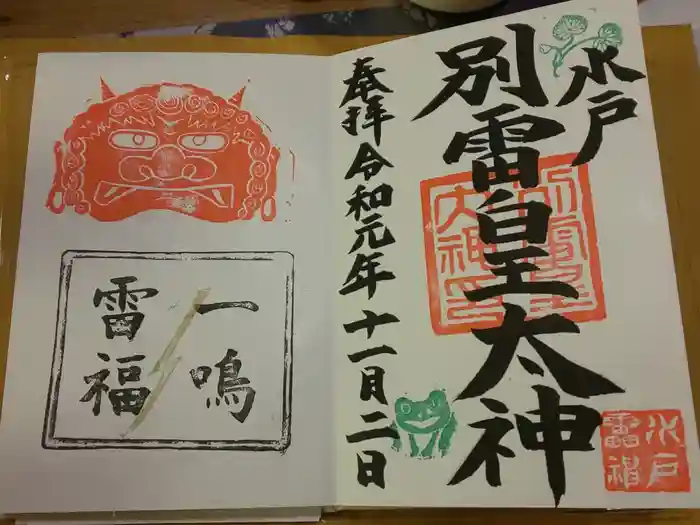 水戸
別雷皇太神
奉拝 令和元年十一月二日
別雷皇
太神
水戸
雷神
一鳴
雷福